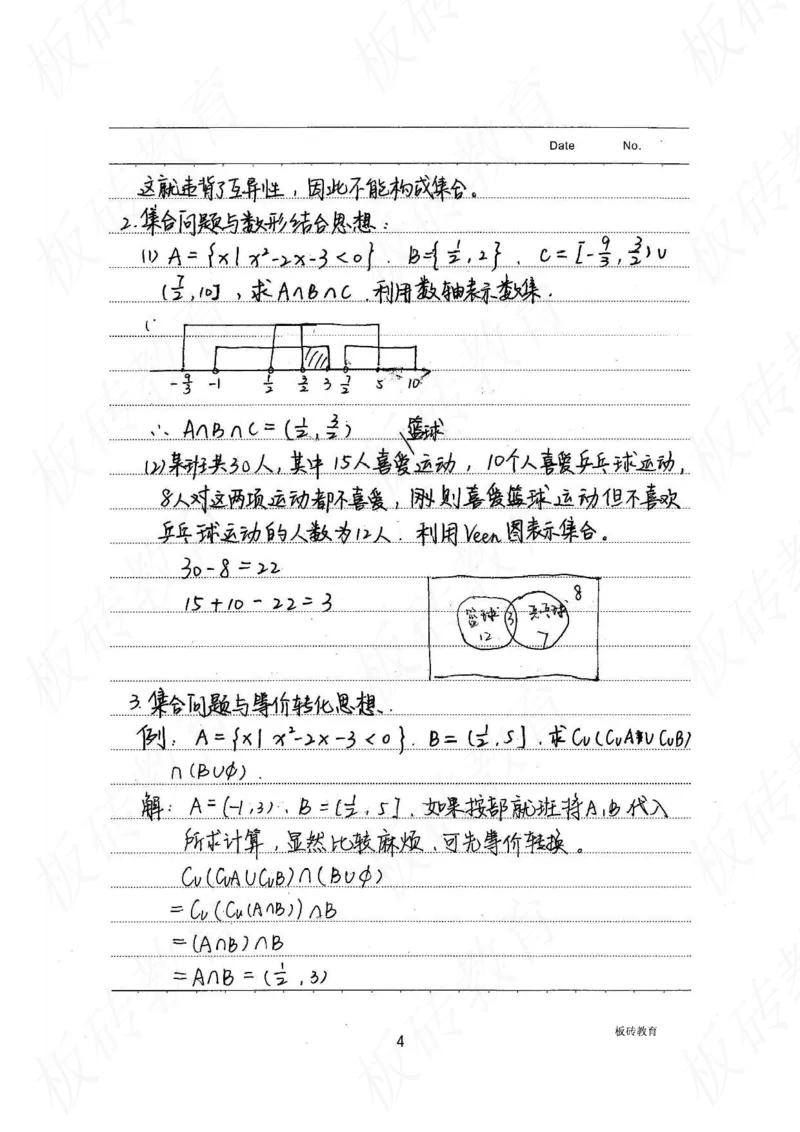 Date No.
这就违背了互异性，因此不能构成集合。
2.集合问题与数形结合思想：
(1) A={x| x²-2x-3<0}. B={½,2}. C=[-9/3, 3/2)∪
(7/2,10]，求A∩B∩C.利用数轴表示数集.
(
-9/3 -1 1/2 3/2 3 7/2 5 10
∴ A∩B∩C=(½, 3/2)
篮球
(2)某班共30人，其中15人喜爱运动，10个人喜爱乒乓球运动，
8人对这两项运动都不喜爱，则喜爱篮球运动但不喜欢
乒乓球运动的人数为12人.利用Veen图表示集合。
30-8=22
15+10-22=3
8
篮球 3 乒乓球
12 7
3.集合问题与等价转化思想.
例：A={x| x²-2x-3<0}. B=(½,5].求C∪(C∪A∪C∪B)
∩(B∪φ).
解：A=(-1,3)、B=[½,5].如果按部就班将A、B代入
所求计算，显然比较麻烦、可先等价转换。
C∪(C∪A∪C∪B)∩(B∪φ)
=C∪(C∪(A∩B))∩B
=(A∩B)∩B
=A∩B=(½,3)
板砖教育
4